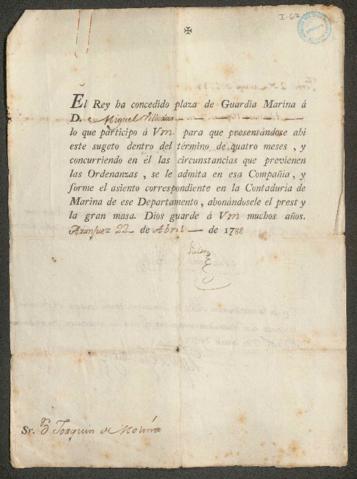 ✠
El Rey ha concedido plaza de Guardia Marina á
D. Miguel
lo que participo á Vm para que presentándose ahi
este sugeto dentro del término de quatro meses, y
concurriendo en él las circunstancias que previenen
las Ordenanzas, se le admita en esa Compañia, y
forme el asiento correspondiente en la Contaduria de
Marina de ese Departamento, abonándosele el prest y
la gran masa. Dios guarde á Vm muchos años.
Aranjuez 22 de Abril de 1788
Sr. D. Joaquin de Molina